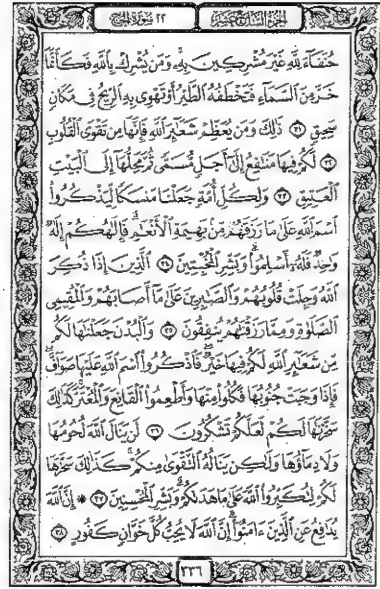 الجزء السابع عشر ٢٢ سورة الحج
حُنَفَآءَ لِلَّهِ غَيْرَ مُشْرِكِينَ بِهِۦ وَمَن يُشْرِكْ بِٱللَّهِ فَكَأَنَّمَا
خَرَّ مِنَ ٱلسَّمَآءِ فَتَخْطَفُهُ ٱلطَّيْرُ أَوْ تَهْوِى بِهِ ٱلرِّيحُ فِى مَكَانٍ
سَحِيقٍ ٣١ ذَٰلِكَ وَمَن يُعَظِّمْ شَعَٰٓئِرَ ٱللَّهِ فَإِنَّهَا مِن تَقْوَى ٱلْقُلُوبِ
٣٢ لَكُمْ فِيهَا مَنَٰفِعُ إِلَىٰٓ أَجَلٍ مُّسَمًّى ثُمَّ مَحِلُّهَآ إِلَى ٱلْبَيْتِ
ٱلْعَتِيقِ ٣٣ وَلِكُلِّ أُمَّةٍ جَعَلْنَا مَنسَكًا لِّيَذْكُرُوا۟
ٱسْمَ ٱللَّهِ عَلَىٰ مَا رَزَقَهُم مِّنۢ بَهِيمَةِ ٱلْأَنْعَٰمِ ۗ فَإِلَٰهُكُمْ إِلَٰهٌ
وَٰحِدٌ فَلَهُۥٓ أَسْلِمُوا۟ ۗ وَبَشِّرِ ٱلْمُخْبِتِينَ ٣٤ ٱلَّذِينَ إِذَا ذُكِرَ
ٱللَّهُ وَجِلَتْ قُلُوبُهُمْ وَٱلصَّٰبِرِينَ عَلَىٰ مَآ أَصَابَهُمْ وَٱلْمُقِيمِى
ٱلصَّلَوٰةِ وَمِمَّا رَزَقْنَٰهُمْ يُنفِقُونَ ٣٥ وَٱلْبُدْنَ جَعَلْنَٰهَا لَكُم
مِّن شَعَٰٓئِرِ ٱللَّهِ لَكُمْ فِيهَا خَيْرٌ ۖ فَٱذْكُرُوا۟ ٱسْمَ ٱللَّهِ عَلَيْهَا صَوَآفَّ ۖ
فَإِذَا وَجَبَتْ جُنُوبُهَا فَكُلُوا۟ مِنْهَا وَأَطْعِمُوا۟ ٱلْقَانِعَ وَٱلْمُعْتَرَّ ۚ كَذَٰلِكَ
سَخَّرْنَٰهَا لَكُمْ لَعَلَّكُمْ تَشْكُرُونَ ٣٦ لَن يَنَالَ ٱللَّهَ لُحُومُهَا
وَلَا دِمَآؤُهَا وَلَٰكِن يَنَالُهُ ٱلتَّقْوَىٰ مِنكُمْ ۚ كَذَٰلِكَ سَخَّرَهَا
لَكُمْ لِتُكَبِّرُوا۟ ٱللَّهَ عَلَىٰ مَا هَدَىٰكُمْ ۗ وَبَشِّرِ ٱلْمُحْسِنِينَ ٣٧ ۞ إِنَّ ٱللَّهَ
يُدَٰفِعُ عَنِ ٱلَّذِينَ ءَامَنُوٓا۟ ۗ إِنَّ ٱللَّهَ لَا يُحِبُّ كُلَّ خَوَّانٍ كَفُورٍ ٣٨
٣٣٦